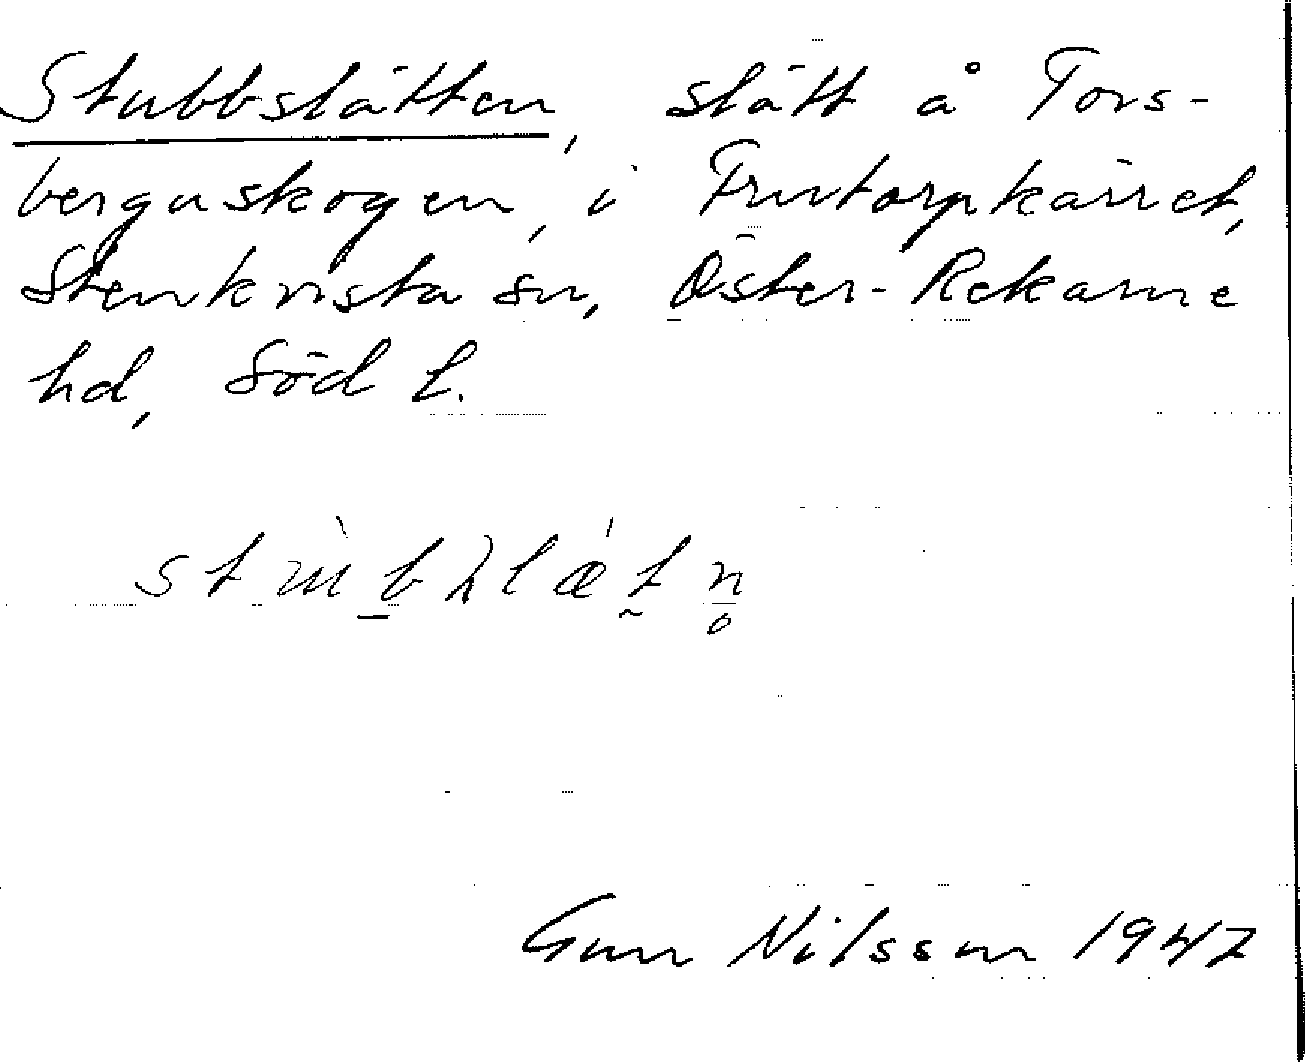 Stubbslätten, slätt å Tors-
bergaskogen, i Frutorpkärret,
Stenkvista sn, Öster-Rekarne
hd, Söd l.
Gun Nilsson 1947